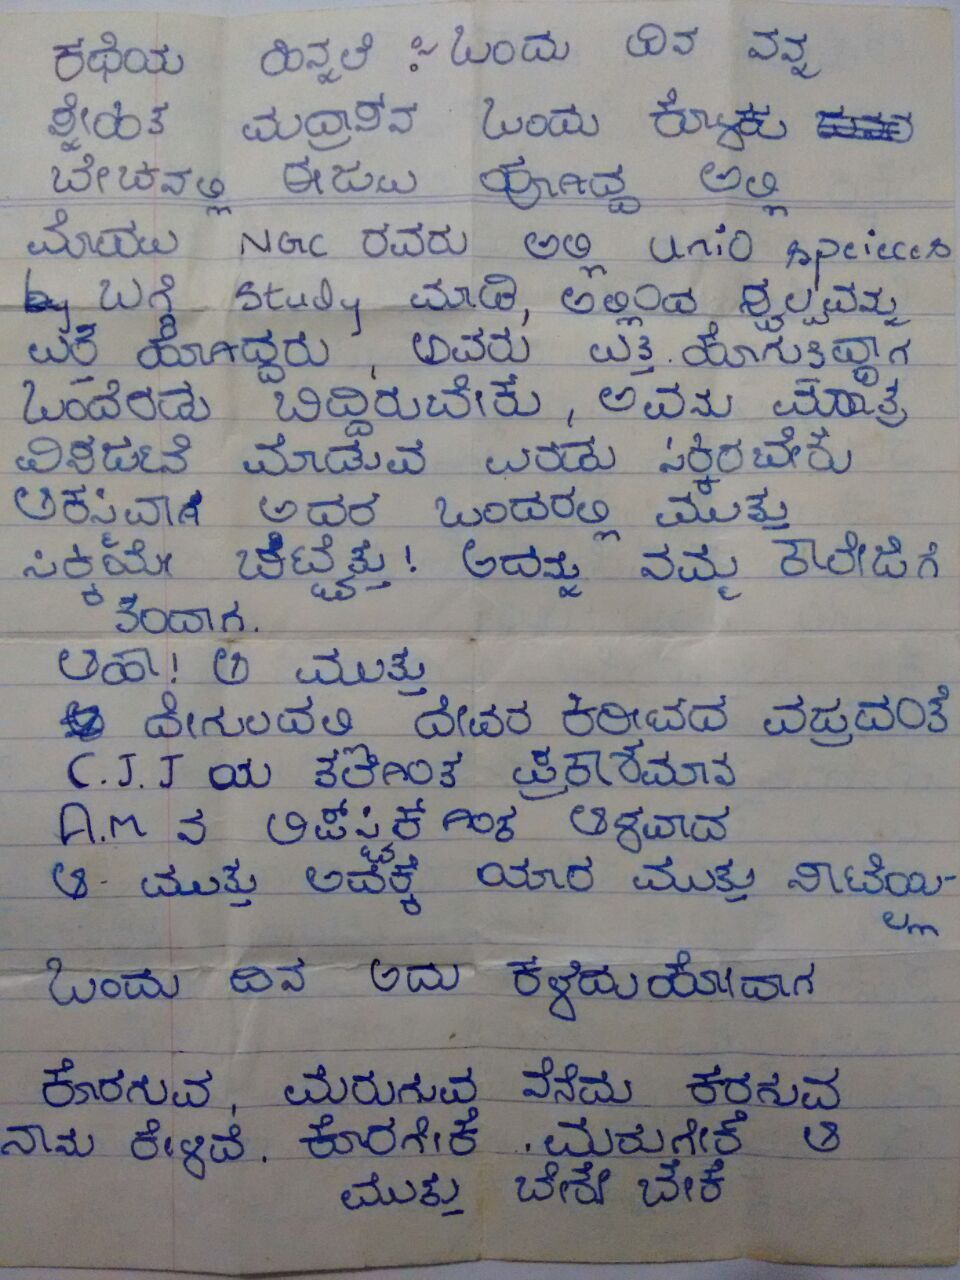 ಕಥೆಯ ಹಿನ್ನಲೆ :- ಒಂದು ದಿನ ನನ್ನ
ಸ್ನೇಹಿತ ಮದ್ರಾಸಿನ ಒಂದು ಕೊಳಕು
ಬೇಚನಲ್ಲಿ ಈಜಲು ಹೋಗಿದ್ದ ಅಲ್ಲಿ
ಮೊದಲು NGC ರವರು ಅಲ್ಲಿ
ಬಗ್ಗೆ Study ಮಾಡಿ, ಅಲ್ಲಿಂದ ಸ್ವಲ್ಪವನ್ನು
ಎತ್ತಿ ಹೋಗಿದ್ದರು, ಅವರು ಎತ್ತಿ ಹೋಗುತ್ತಿದ್ದಾಗ
ಒಂದೆರಡು ಬಿದ್ದಿರುಬೇಕು, ಅವನು ಮಾತ್ರ
ಮಾಡುವ ಎರಡು ಸಿಕ್ಕಿರಬೇಕು
ಅದರ ಒಂದರಲ್ಲಿ ಮುತ್ತು
ಸಿಕ್ಕಯೇ ಬಿಟ್ಟಿತ್ತು! ಅದನ್ನು ನಮ್ಮ ಕಾಲೇಜಿಗೆ
ತಂದಾಗ.
ಆಹಾ! ಆ ಮುತ್ತು
ದೇಗುಲದಲಿ ದೇವರ ಕಿರೀಟದ ವಜ್ರದಂತೆ
C.J.J ಯ ತಲೆಗಿಂತ ಪ್ರಕಾಶಮಾನ
A.M ನ ಗಿಂತ ಆಳವಾದ
ಆ ಮುತ್ತು ಅದಕ್ಕೆ ಯಾರ ಮುತ್ತು ಸಾಟಿಯಿ-
ಲ್ಲ
ಒಂದು ದಿನ ಅದು ಕಳೆದುಹೋದಾಗ
ಕೊರಗುವ, ಮರುಗುವ ನೆನೆದು ಕರಗುವ
ನಾನು ಕೇಳಿದೆ. ಕೊರಗೇಕೆ. ಮರುಗೇಕೆ ಆ
ಮುತ್ತು ಬೇಕೇ ಬೇಕೆ